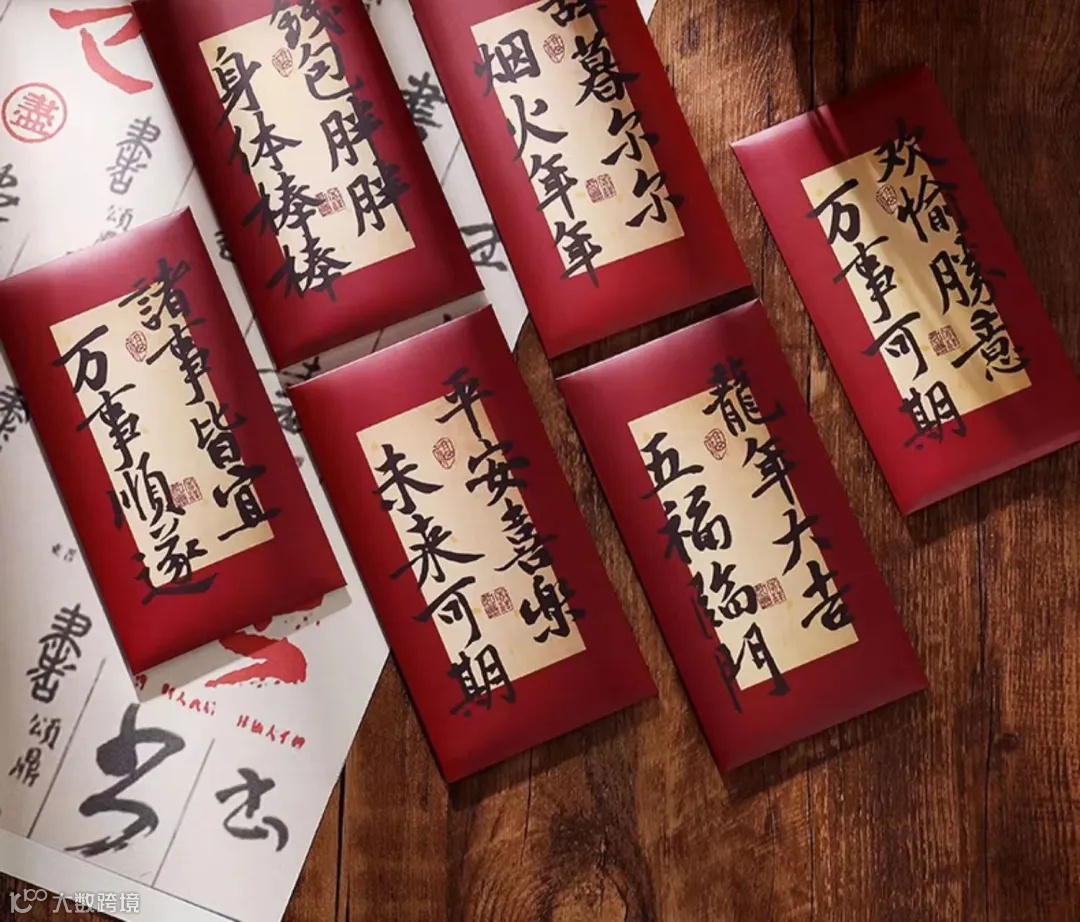 錢包胖胖
身体棒棒
辞暮尔尔
烟火年年
欢愉勝意
万事可期
諸事皆宜
万事順遂
平安喜樂
未来可期
龍年大吉
五福臨門
頌
頌鼎
大数跨境